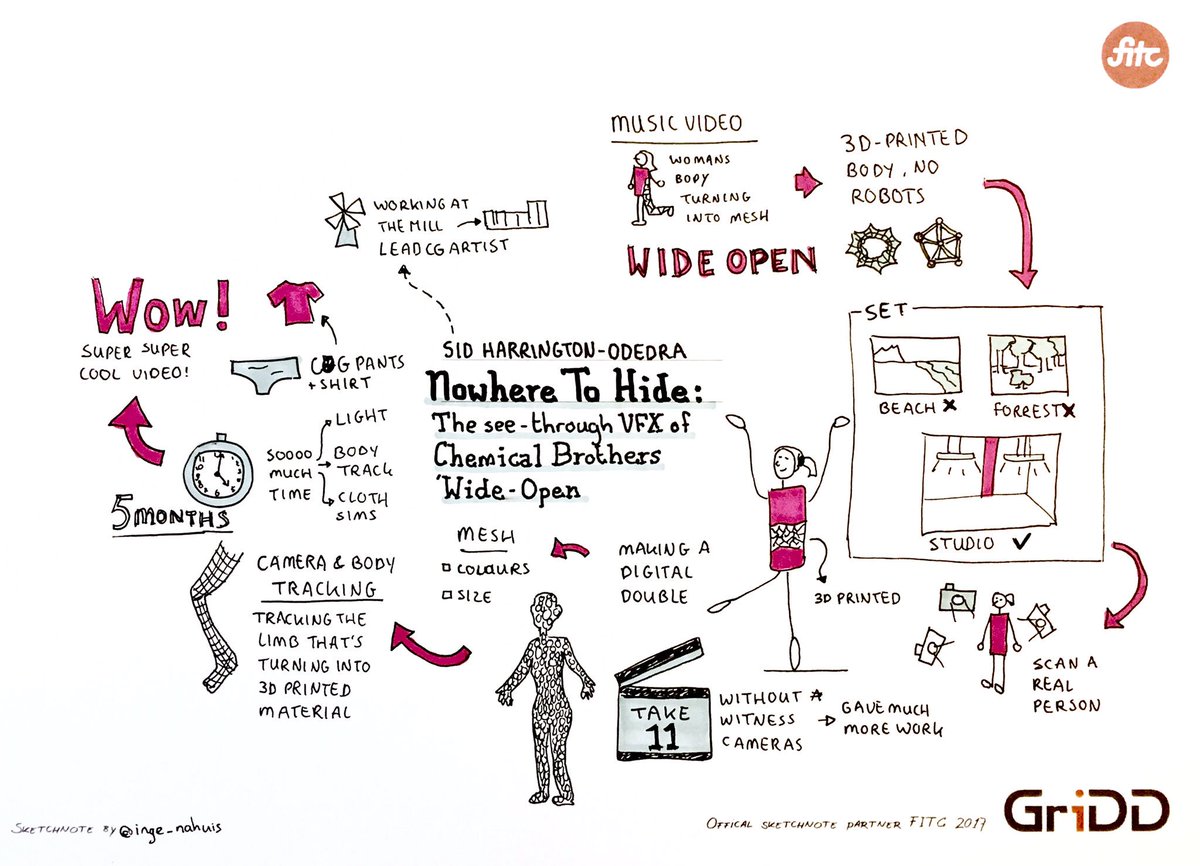 fitc
MUSIC VIDEO
WOMANS
BODY
TURNING
INTO MESH
WIDE OPEN
3D-PRINTED
BODY, NO
ROBOTS
WORKING AT
THE MILL
LEAD CG ARTIST
WOW!
SUPER SUPER
COOL VIDEO!
CG PANTS
+ SHIRT
SID HARRINGTON-ODEDRA
Nowhere To Hide:
The see-through VFX of
Chemical Brothers
'Wide-Open
SET
BEACH X
FORREST X
STUDIO ✓
SOOOO
MUCH
TIME
LIGHT
BODY
TRACK
CLOTH
SIMS
5 MONTHS
MESH
COLOURS
SIZE
MAKING A
DIGITAL
DOUBLE
3D PRINTED
CAMERA & BODY
TRACKING
TRACKING THE
LIMB THAT'S
TURNING INTO
3D PRINTED
MATERIAL
TAKE
11
WITHOUT A
WITNESS
CAMERAS
GAVE MUCH
MORE WORK
SCAN A
REAL
PERSON
SKETCHNOTE BY @inge_nahuis
OFFICAL SKETCHNOTE PARTNER FITC 2017
GriDD